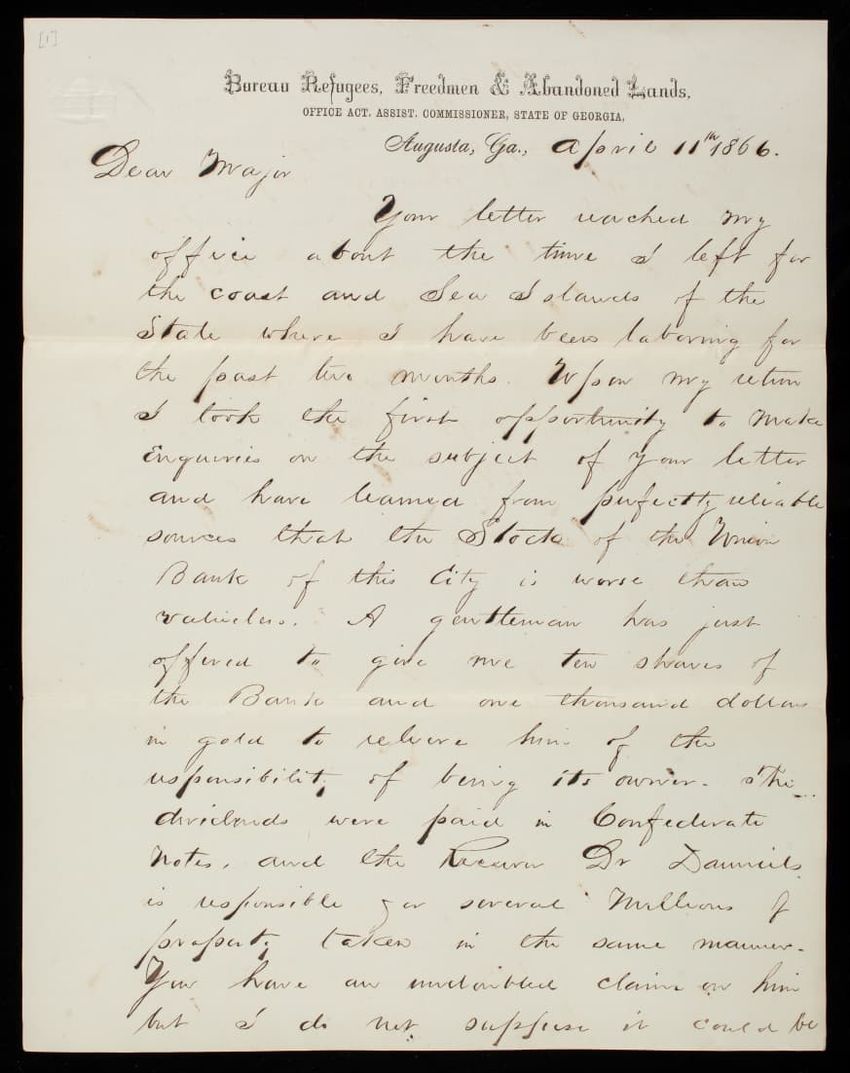 [1]
Bureau Refugees, Freedmen & Abandoned Lands,
OFFICE ACT. ASSIST. COMMISSIONER, STATE OF GEORGIA,
Augusta, Ga., April 11th 1866.
Dear Major
Your letter reached my
office about the time I left for
the coast and Sea Islands of the
State where I have been laboring for
the past two months. Upon my return
I took the first opportunity to make
enquiries on the subject of your letter
and have learned from perfectly reliable
sources that the Stock of the Union
Bank of this City is worse than
valueless. A gentleman has just
offered to give me ten shares of
the Bank and one thousand dollars
in gold to relieve him of the
responsibility of being its owner. The
dividends were paid in Confederate
Notes, and the Receiver Dr Danniels
is responsible for several Millions of
property taken in the same manner.
You have an undoubted claim on him
but I do not suppose it could be